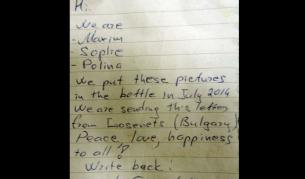 Hi,
We are
- Maxim
- Sophie
- Polina
We put these pictures
in the bottle in July 2014
We are sending this letter
from Losenets (Bulgary)
Peace, love, happiness
to all !
Write back :